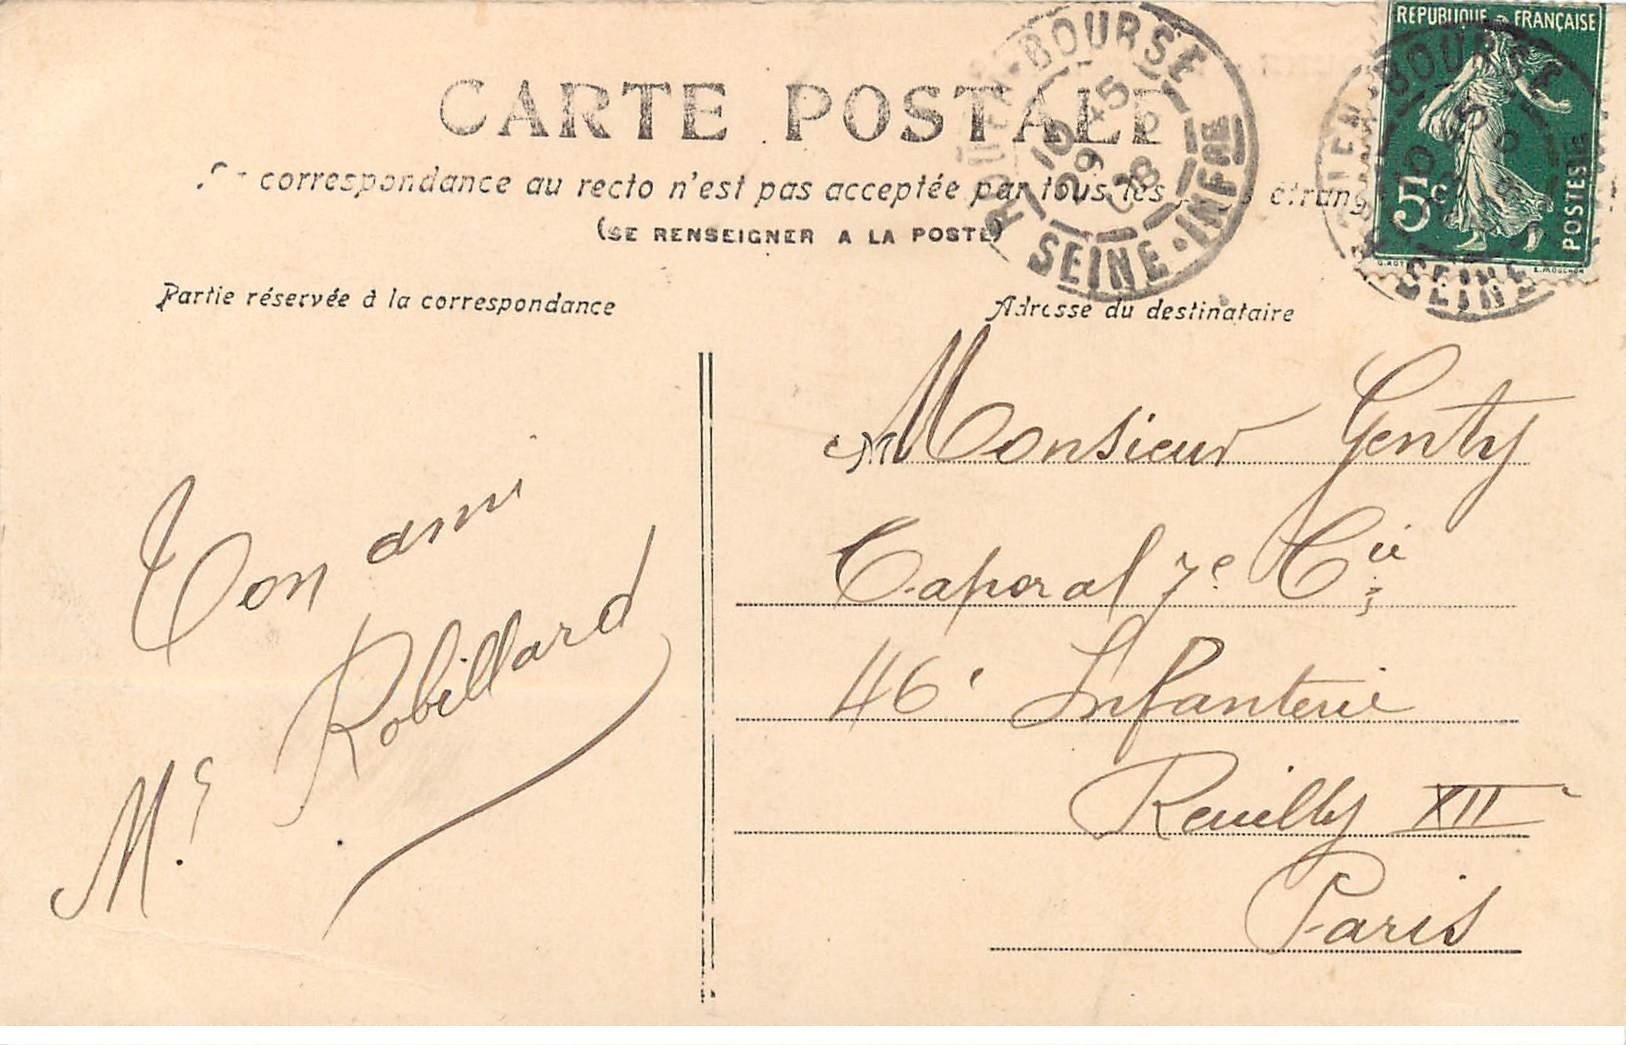 CARTE POSTALE
correspondance au recto n'est pas acceptée par tous les étrang
(SE RENSEIGNER A LA POSTE)
Partie réservée à la correspondance
Adresse du destinataire
ROUEN-BOURSE
10 45
29
08
SEINE-INFRE
REPUBLIQUE FRANÇAISE
5c
POSTES
E. MOUCHON
BOURSE
SEINE
Ton ami
Mce Robillard
M
Monsieur Genty
Caporal 7e Cie
46e Infanterie
Reuilly XII
Paris